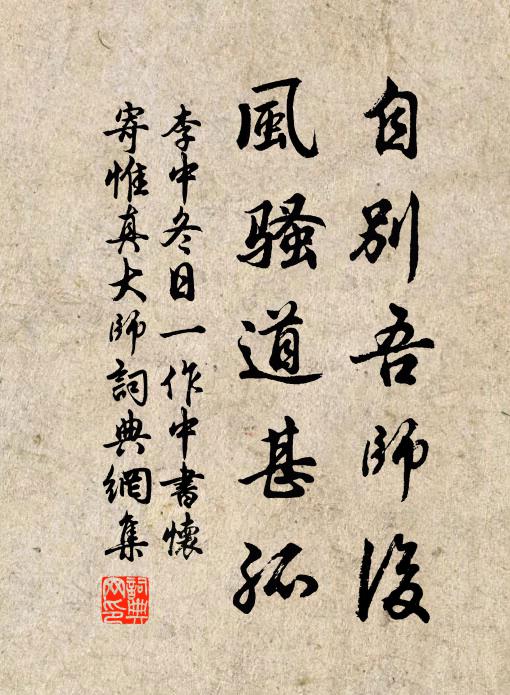 自別吾師後
風騷道甚孤
李中冬日一作中書懷
寄惟真大師詞典網集
詞典網印